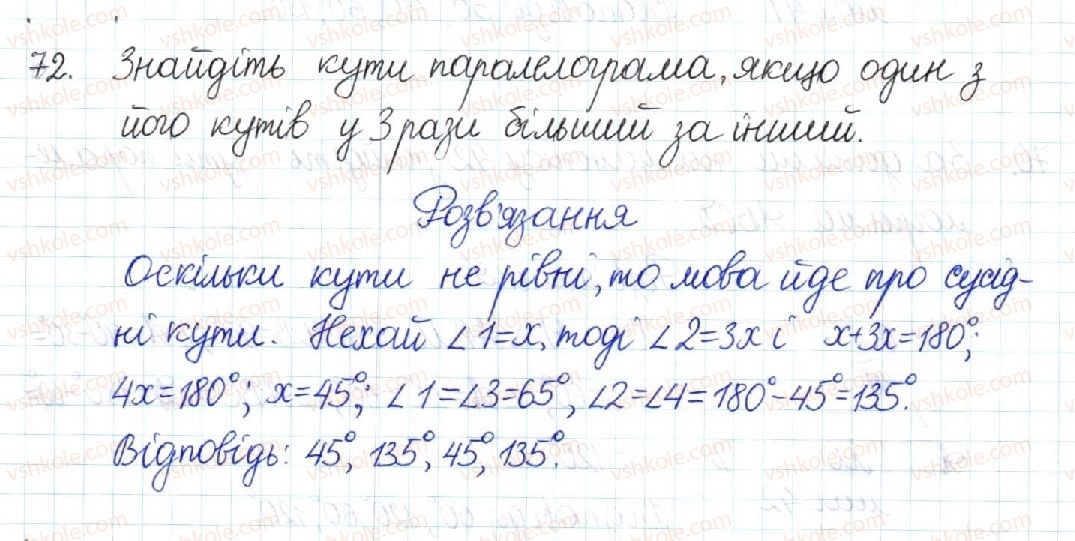 72. Знайдіть кути паралелограма, якщо один з
його кутів у 3 рази більший за інший.
Розв'язання
Оскільки кути не рівні, то мова йде про сусід-
ні кути. Нехай ∠1=x, тоді ∠2=3x і x+3x=180°;
4x=180°; x=45°; ∠1=∠3=65°, ∠2=∠4=180°-45°=135°.
Відповідь: 45°, 135°, 45°, 135°.